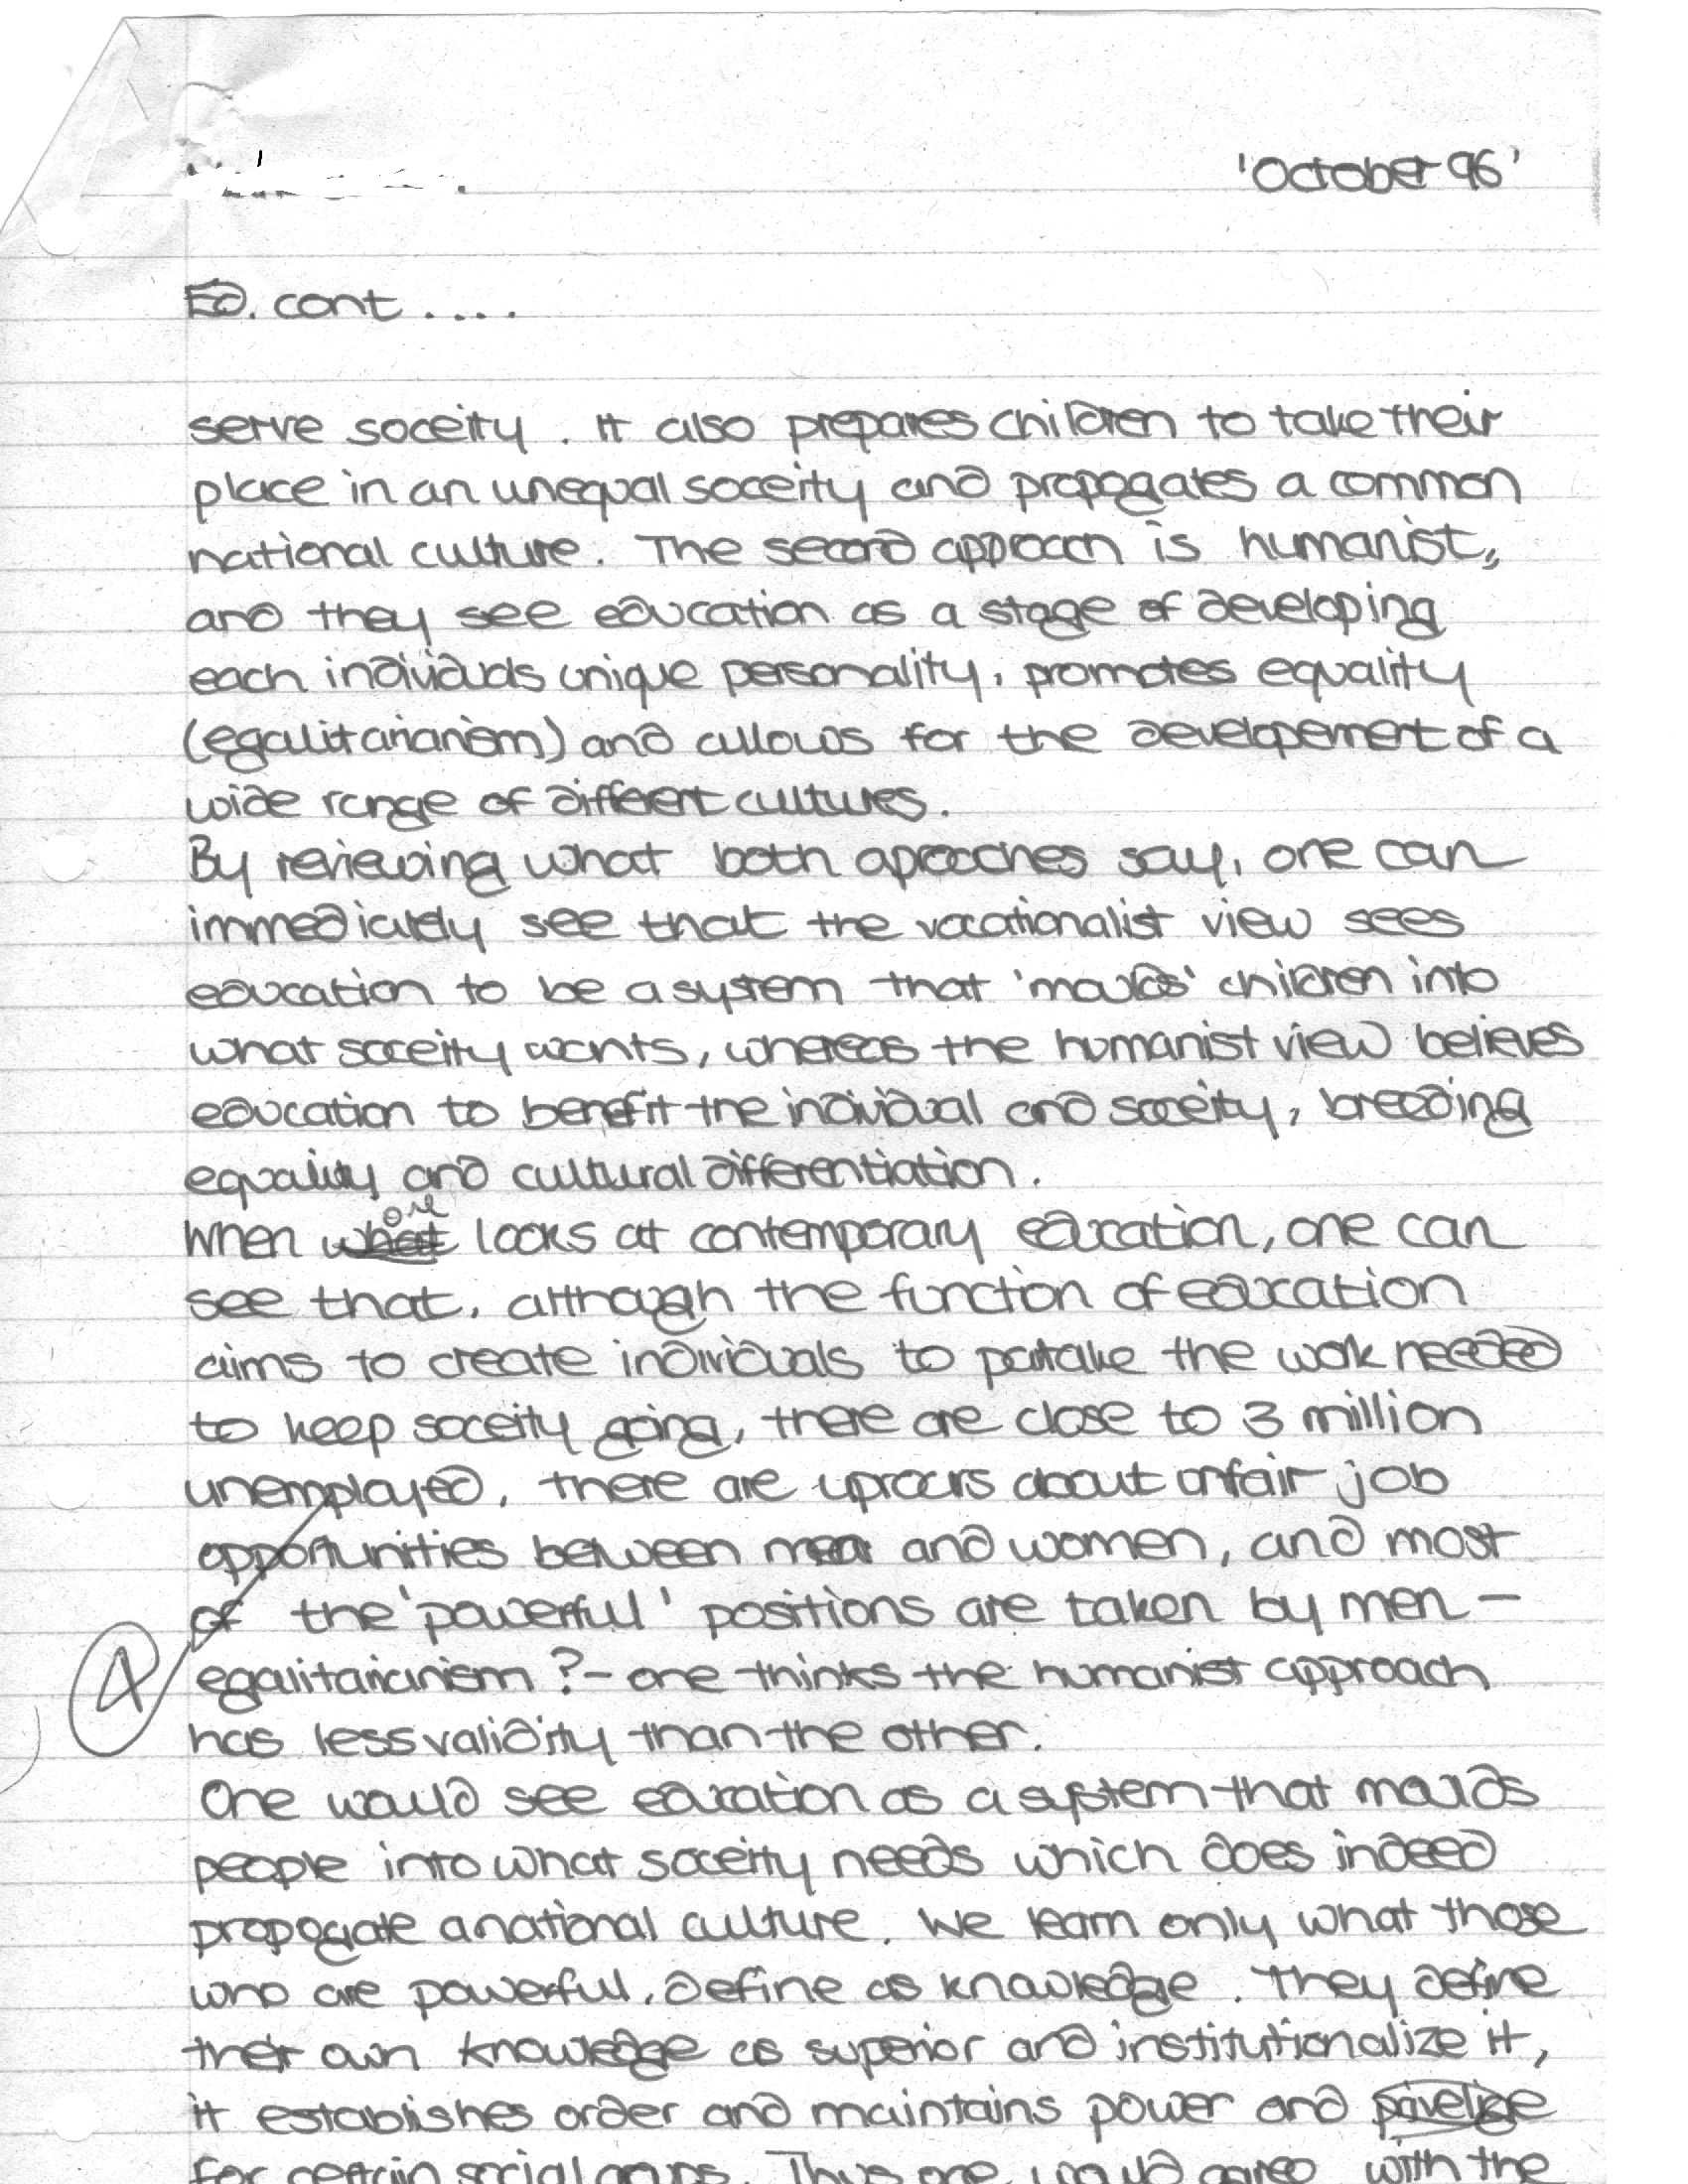 'October 96'
Ed. cont ....
serve soceity. It also prepares children to take their
place in an unequal soceity and propogates a common
national culture. The second approach is humanist,
and they see education as a stage of developing
each individuals unique personality, promotes equality
(egalitarianism) and allows for the developement of a
wide range of different cultures.
By reviewing what both aproaches say, one can
immediately see that the vocationalist view sees
education to be a system that 'moulds' children into
what soceity wants, whereas the humanist view believes
education to benefit the individual and soceity, breeding
equality and cultural differentiation.
one
When what looks at contemporary education, one can
see that, although the function of education
aims to create individuals to partake the work needed
to keep soceity going, there are close to 3 million
unemployed, there are uproars about unfair job
opportunities between men and women, and most
of the 'powerful' positions are taken by men -
egalitarianism ? - one thinks the humanist approach
has less validity than the other.
One would see education as a system that moulds
people into what soceity needs which does indeed
propogate a national culture. We learn only what those
who are powerful, define as knowledge. They define
their own knowledge as superior and institutionalize it,
it establishes order and maintains power and privelige
for certain social groups. Thus one would agree with the